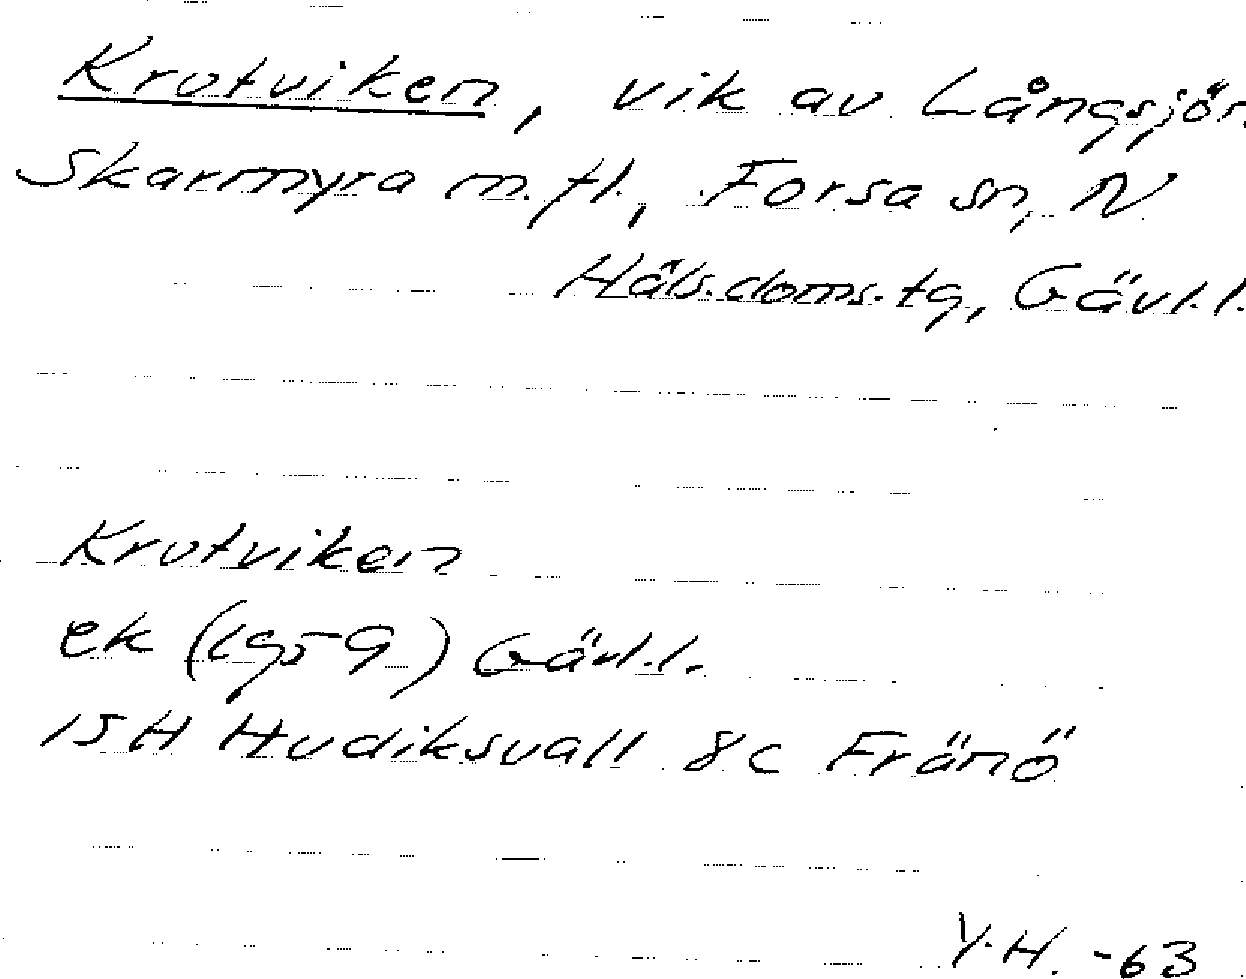 Krutviken, vik av Långsjön
Skarmyra m.fl., Forsa sn, N
Häls.doms.tg, Gävl.l.
Krutviken
ek (1959) Gävl.l.
15H Hudiksvall 8c Fränö
Y.H. -63